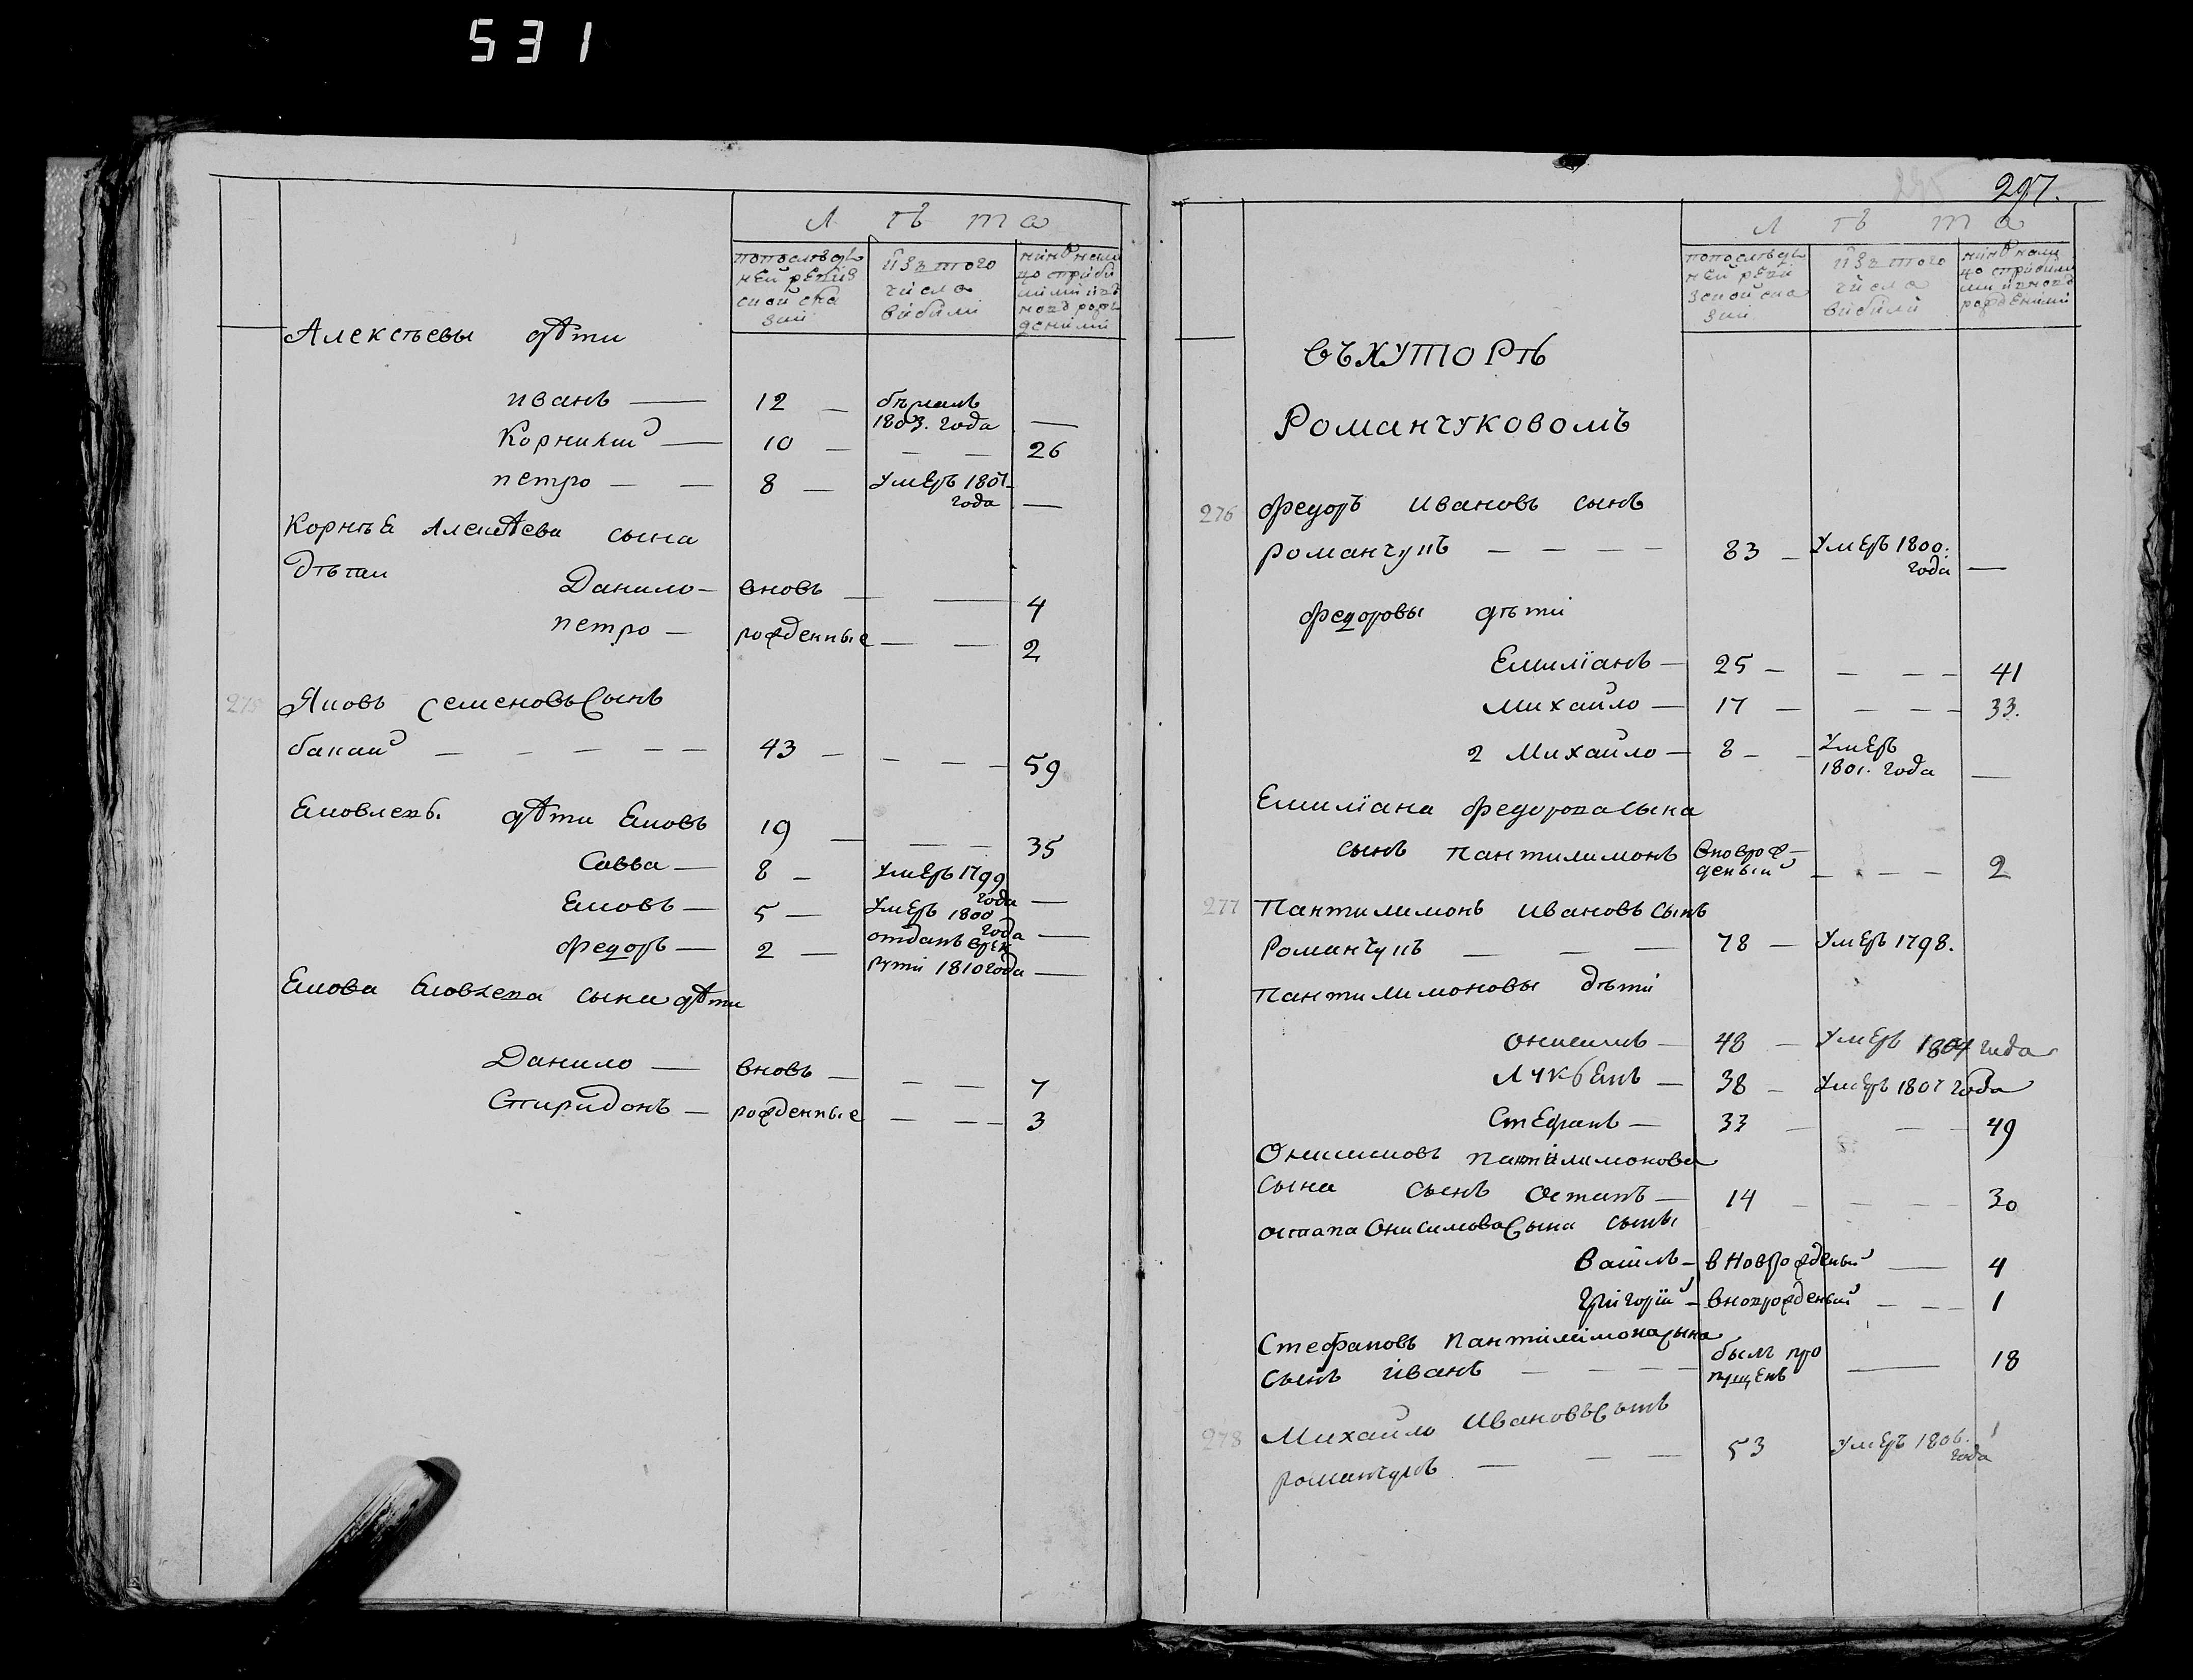 531
Л ѣ т а
попослѣд
ней ревиз
ской ска
зки
изъ того
числа
вибили
Алексѣевы дѣти
иванъ — 12 — бѣжалъ
1803. года —
Корнилий — 10 — — — 26
петро — — 8 — умеръ 1801
года —
Корнѣя Алексѣева сына
Дѣтки
Данило — вновь — — 4
петро — рожденные — — 2
275 Яковъ Семеновъ Сынъ
бакай — — — — — 43 — — — — 59
Яковлевы. дѣти Яковъ 19 — — — 35
Савва — 8 — умеръ 1799
года —
Яковъ — 5 — умеръ 1800
года —
федоръ — 2 — отданъ врек
рути 1810 года —
Якова Яковлева сына дѣти
Данило — вновь — — — 7
Спиридонъ — рожденные — — — 3
297.
Л ѣ т а
попослѣд
ней реви
зской ска
зки
изъ того
числа
вибили
въ хуторѣ
Романчуковомъ
276 федоръ ивановъ сынъ
романчукъ — — — — 83 — умеръ 1800.
года —
федоровы дѣти
Емилїанъ — 25 — — — — 41
михайло — 17 — — — — 33.
2 Михайло — 8 — — умеръ
1801. года —
Емилїана федорова сына
сынъ пантилимонъ вноврож
деный — — — 2
277 пантилимонъ ивановъ сынъ
Романчукъ — — — 78 — умеръ 1798.
пантилимоновы дѣти
онисимъ — 48 — умеръ 1804 года
Лукьянъ — 38 — умеръ 1807 года
Стефанъ — 33 — — — 49
Онисимовъ пантилимонова
сына сынъ Остапъ — 14 — — — — 30
остапа Онисимова Сына сыны
Василь — вновρожденый — 4
григорїй — вноврожденый — — — 1
Стефановъ пантилимона сына
сынъ иванъ — — — — былъ про
пущенъ — 18
278 Михайло ивановъ сынъ
романчукъ — — — 53 умеръ 1806.
года